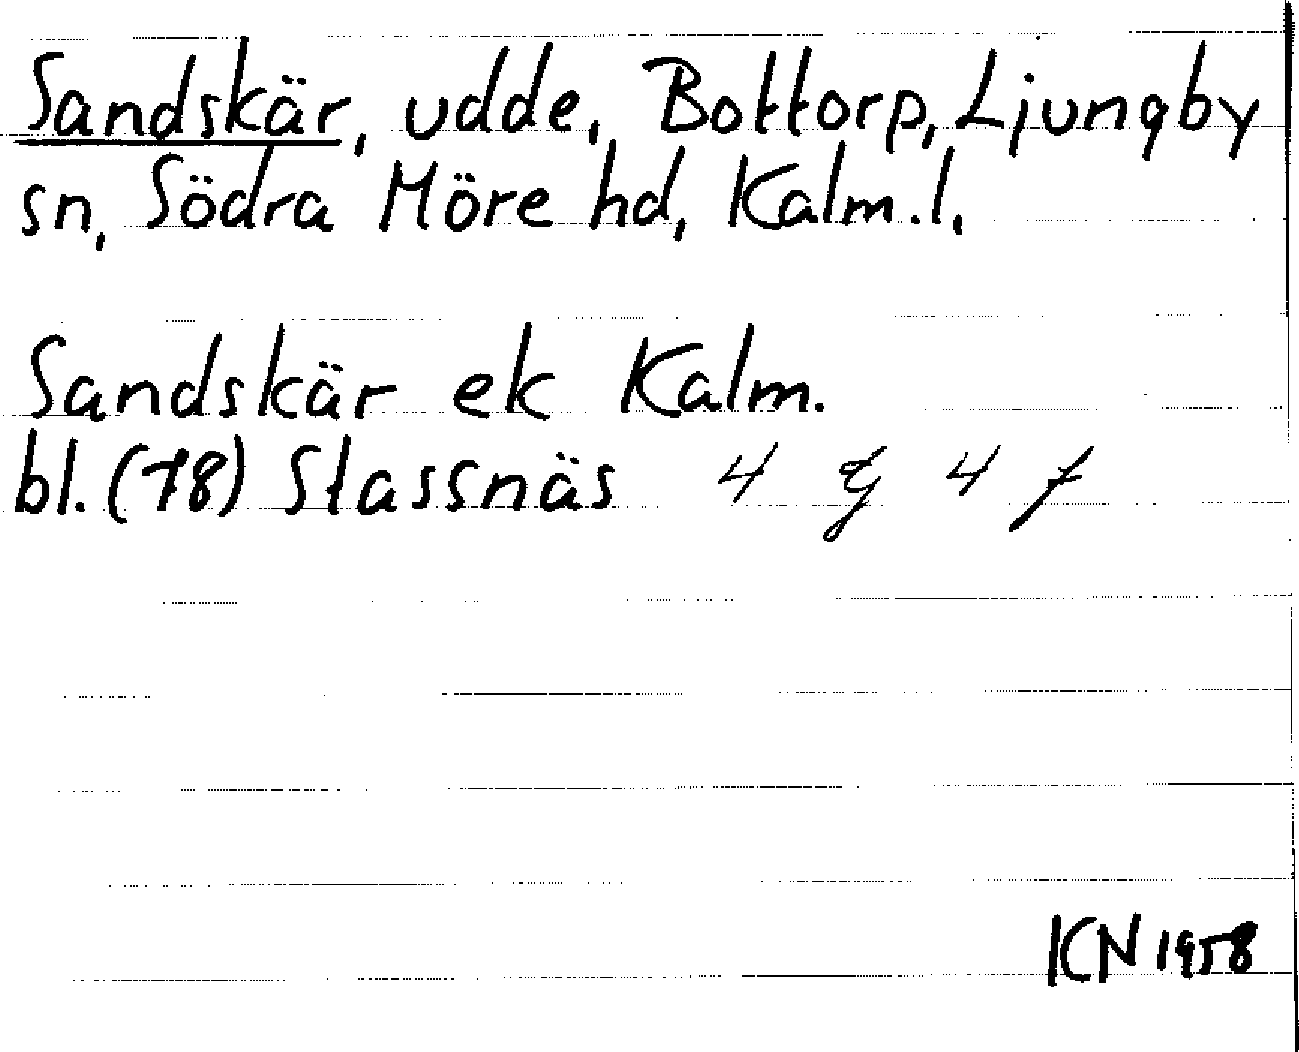 Sandskär, udde, Bottorp, Ljungby
sn, Södra Möre hd, Kalm.l.
Sandskär ek Kalm.
bl. (78) Stassnäs 4 g 4 f
KN 1958